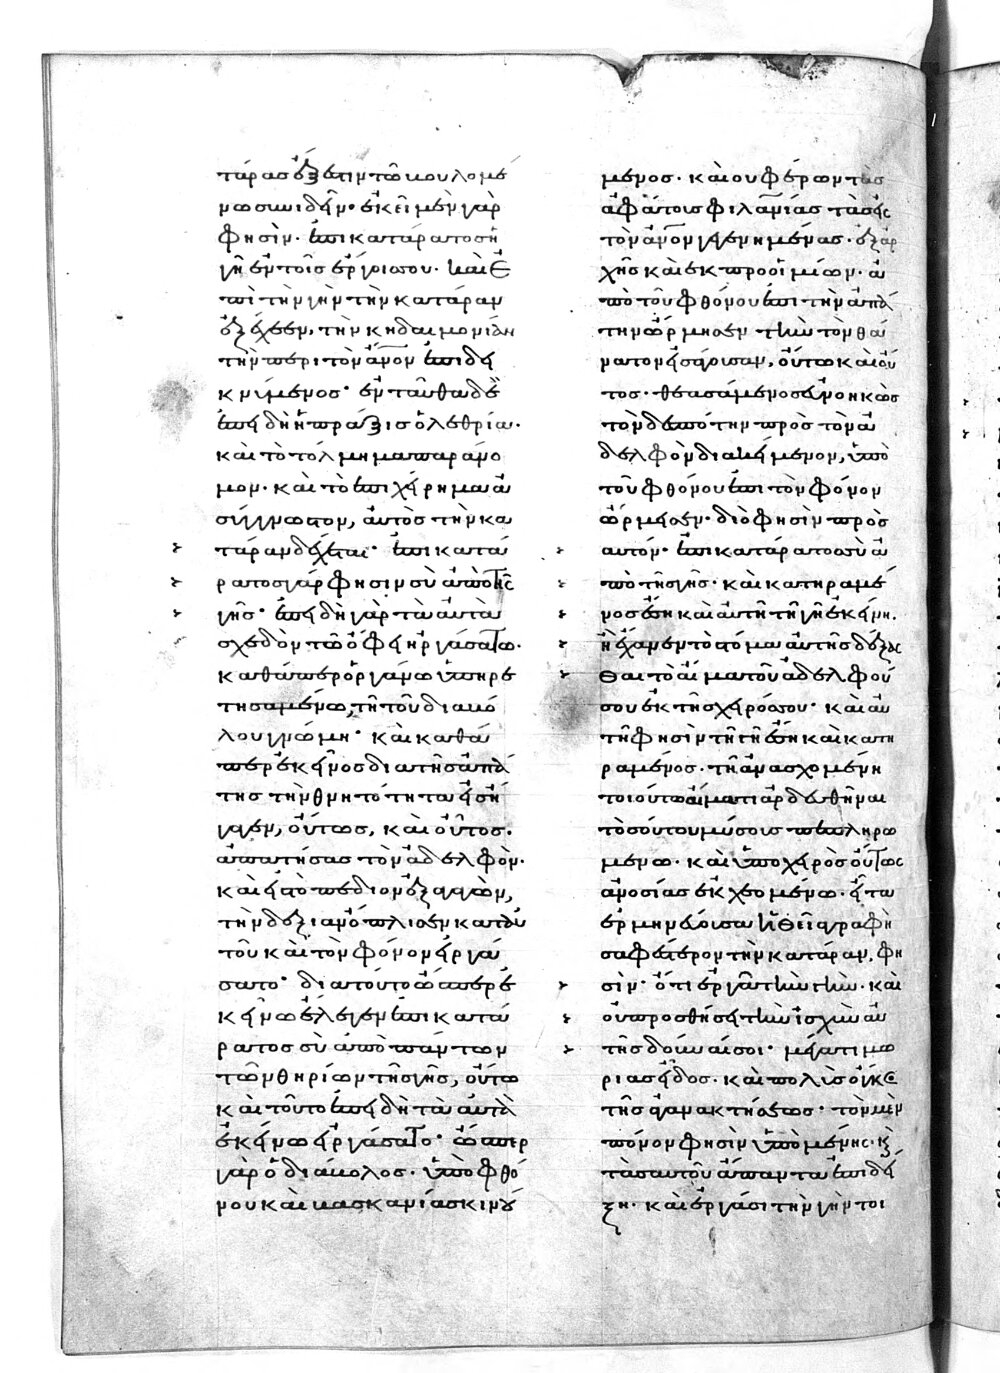 τάρασ ἔξεστιν τῶ βουλομέ
νω συνιδεῖν· ἐκεῖ μὲν γὰρ
φησὶν· ἐπικατάρατοσ ἡ
γῆ ἐν τοῖσ ἔργοισ σου· καὶ ἐ
πὶ τὴν γῆν τὴν κατάραν
ἐξέχεεν, τὴν κηδαιμονίαν
τὴν περὶ τὸν ἄνον ἐπιδει
κνύμενοσ· ἐνταῦθα δὲ
ἐπειδὴ ἡ πρᾶξισ ὀλεθρία·
καὶ τὸ τόλμημα παράνο
μον· καὶ τὸ ἐπιχείρημα ἀ
σύγγνωστον, αὐτὸσ τὴν κα
τάραν δέχεται· ἐπικατά
ρατοσ γάρ φησιν σὺ ἀπὸ τῆς
γῆσ· ἐπειδὴ γὰρ τὰ αὐτὰ
σχεδὸν τῶ ὄφει ἠργάσατο·
καθάπερ ὀργάνω ὑπηρε
τησαμένω, τῆ τοῦ διαβό
λου γνώμη· καὶ καθά
περ ἐκεῖνοσ διὰ τῆσ ἀπά
τησ τὴν θνητότητα εἰσή
γαγεν, οὕτωσ, καὶ οὗτοσ·
ἀπατήσασ τὸν ἀδελφὸν·
καὶ εἰσ τὸ πεδίον ἐξαγαγὼν,
τὴν δεξιὰν ὅπλισεν κατ' αὐ
τοῦ καὶ τὸν φόνον εἰργά
σατο· διὰ τοῦτο ὥσπερ ἐ
κείνω ἔλεγεν ἐπικατά
ρατοσ σὺ ἀπὸ πάντων
τῶν θηρίων τῆσ γῆσ, οὕτω
καὶ τοῦτο ἐπειδὴ τὰ αὐτὰ
ἐκείνω εἰργάσατο· ὥσπερ
γὰρ ὁ διάβολοσ· ὑπὸ φθό
νου καὶ βασκανίασ κινού
μενοσ· καὶ οὐ φέρων τὰσ
ἀφάτουσ φιλανίασ τὰσ εἰς
τὸν ἄνον γεγενημένασ· ἐξ ἀρ
χῆσ καὶ ἐκ προοιμίων· ἀ
πὸ τοῦ φθόνου ἐπὶ τὴν ἀπά
την ὥρμησεν τὴν τὸν θά
νατον εἰσάγουσαν, οὕτω καὶ οὗ
τοσ· θεασάμενοσ εὐνοικῶσ
τὸν δεσπότην πρὸσ τὸν ἀ
δελφὸν διακείμενον, ὑπὸ
τοῦ φθόνου ἐπὶ τὸν φόνον
ὥρμησεν· διὸ φησὶν πρὸσ
αὐτόν· ἐπικατάρατοσ σὺ ἀ
πὸ τῆσ γῆσ· καὶ κατηραμέ
νοσ ἔση καὶ αὐτῆ τῆ γῆ ἐκείνη·
ἣ ἔχανεν τὸ στόμα αὐτῆσ δέξασ
θαι τὸ αἷμα τοῦ ἀδελφοῦ
σου ἐκ τῆσ χειρόσ σου· καὶ αὐ
τῆ φησὶν τῆ γῆ ἔση καὶ κατη
ραμένοσ· τῆ ἀνασχομένη
τοιούτω αἵματι ἀρδευθῆναι
τὸ σοῦ τοῦ μύσουσ πεπληρω
μένω· καὶ ὑπὸ χειρὸσ οὕτωσ
ἀνοσίασ ἐκχεομένω· εἶτα
ἑρμηνεύουσα ἡ θεία γραφὴ
σαφέστερον τὴν κατάραν, φη
σὶν· ὅτι ἐργᾶ τὴν γῆν· καὶ
οὐ προσθήσει τὴν ἰσχὺν αὐ
τῆσ δοῦναί σοι· μέγα τιμω
ρίασ εἶδοσ· καὶ πολὺσ ὁ ὄγκοσ
τῆσ ἀγανακτήσεωσ· τὸν μὲν
πόνον φησὶν ὑπομένεισ· καὶ
τὰ σαυτοῦ ἅπαντα ἐπιδεί
ξη· καὶ ἐργάση τὴν γῆν τοι